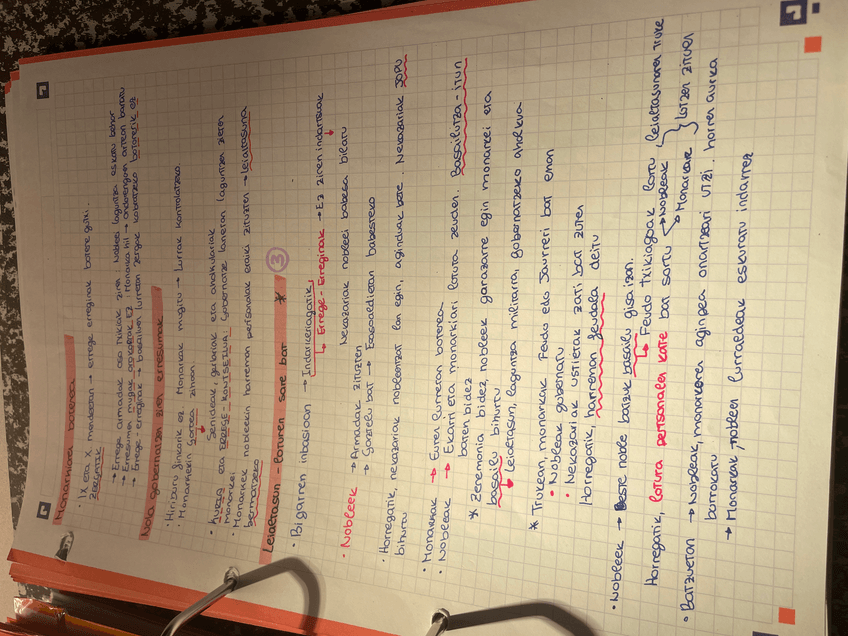 Monarkiaren boterea
• IX eta X. mendeetan → errege erreginak botere gutxi.
ZERGATIK
→ Errege armadak oso txikiak ziren. Nobleei laguntza eskatu behar
→ Erresumen mugak orokorrak EZ. Monarka hil → ondorengoen artean banatu
→ Errege erreginak → basailuen lurretan zergak kobratzeko botererik ez
Nola gobernatzen ziren erresumak
• Hiriburu finkorik ez. Monarkak mugitu → lurrak kontrolatzeko.
• Monarkekin Gortea zihoan
Senideak, guardiak eta aholkulariak
• Kuria eta ERREGE-KONTSEILUA: Gobernatze lanetan laguntzen zieten
monarkei
• Monarkek nobleekin harreman pertsonalak eraiki zituzten → leialtasuna
bermatzeko
Leialtasun-loturen sare bat * ③
• Bigarren inbasioan → Indarkeriagatik
↳ Errege-Erreginak → Ez ziren indartsuak
Nekazariak nobleei babesa bilatu
• Nobleek → Armadak zituzten
→ Gaztelu bat → Erasoaldietan babesteko
• Horregatik, nekazariak nobleentzat lan egin, aginduak bete. Nekazariak JOPU
bihurtu
• Monarkak → Euren lurretan boterea
• Nobleak → Ekarri eta monarkiari lotura zeuden. Basailutza-itun
baten bidez
* Zeremonia bidez, nobleek garazarre egin monarkei eta
basailu bihurtu
↳ Leialtasun, laguntza militarra, gobernatzeko aholkua
* Trukean, monarkak Feudo edo Jaurreri bat eman
• Nobleak gobernatu
• Nekazariak ustietak zati bat zuten
Horregatik, harreman feudala deitu
• Nobleek → Beste noble batzuk basailu gisa izan.
↳ Feudo txikiagoak lortu leialtasunaren truke
Horregatik, lotura pertsonalen kate bat sortu → Nobleak
↘ Monarkak } lotzen zituen
• Batzuetan → Nobleak, monarkaren agintea onartzeari utzi. horren aurka
borrokatu
→ Monarkak, nobleen lurraldeak eskuratu indarrez